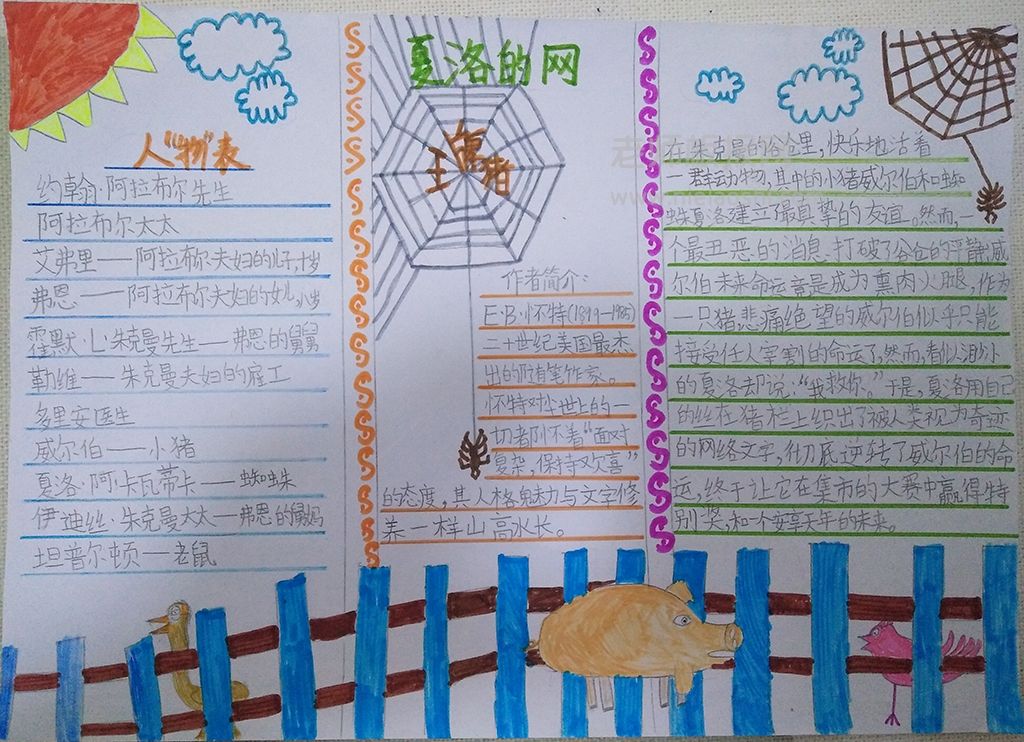 人物表
约翰·阿拉布尔先生
阿拉布尔太太
艾弗里——阿拉布尔夫妇的儿子,十岁
弗恩——阿拉布尔夫妇的女儿,八岁
霍默·L·朱克曼先生——弗恩的舅舅
勒维——朱克曼夫妇的雇工
多里安医生
威尔伯——小猪
夏洛·阿·卡瓦蒂卡——蜘蛛
伊迪丝·朱克曼太太——弗恩的舅妈
坦普尔顿——老鼠
夏洛的网
王牌猪
作者简介:
E·B·怀特(1899—1985)
二十世纪美国最杰
出的随笔作家。
怀特对尘世上的一
切者阝怀着“面对
复杂,保持欢喜”
的态度,其人格魅力与文字修
养一样山高水长。
在朱克曼的谷仓里,快乐地活着
一群动物,其中的小猪威尔伯和蜘
蛛夏洛建立了最真挚的友谊。然而,一
个最丑恶的消息打破了谷仓的平静:威
尔伯未来命运竟是成为熏肉火腿,作为
一只猪悲痛绝望的威尔伯似乎只能
接受任人宰割的命运了,然而,看似渺小
的夏洛却说:“我救你。”于是,夏洛用自己
的丝在猪栏上织出了被人类视为奇迹
的网络文字,彻底逆转了威尔伯的命
运,终于让它在集市的大赛中赢得特
别奖,和一个安享天年的未来。